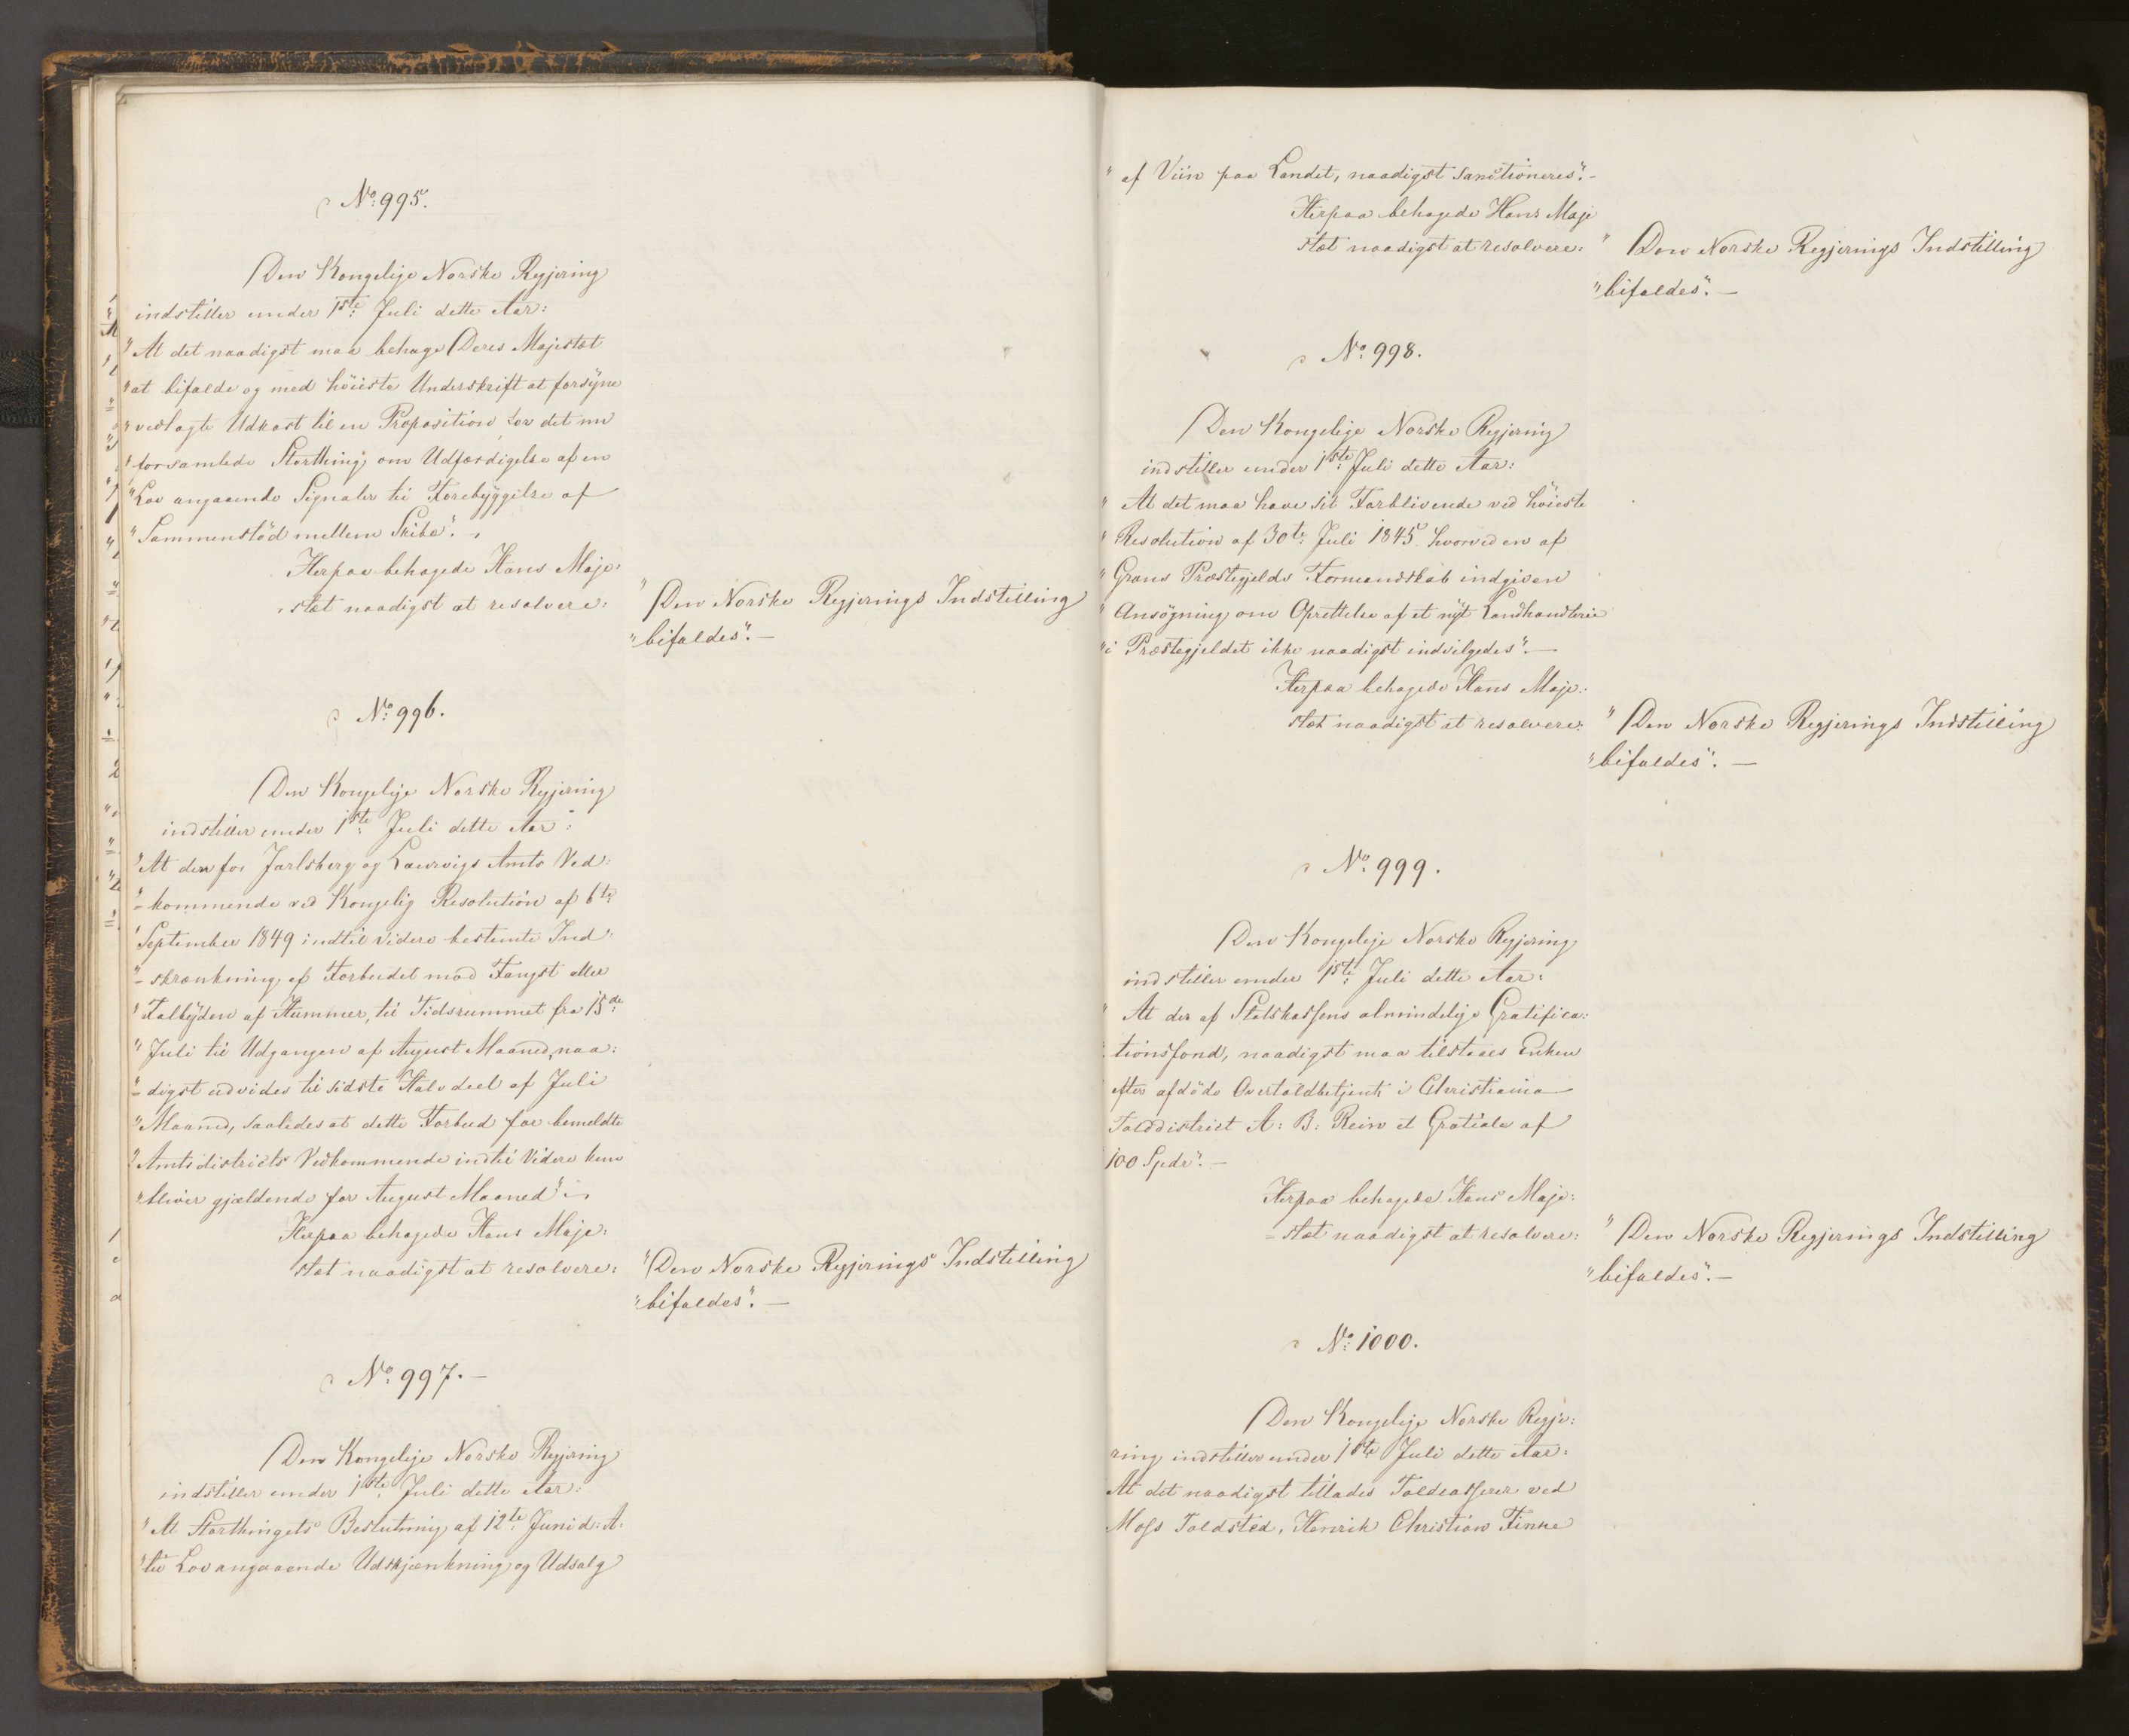 No. 995.
Den Kongelige Norske Regjering
indstiller under 1ste Juli dette Aar:
"At det naadigst maa behage Deres Majestæt
"at bifalde og med höieste Underskrift at forsyne
"vedlagte Udkast til en Proposition for det nu
"forsamlede Storthing om Udfærdigelse af en
"Lov angaaende Signaler til Forebyggelse af
"Sammenstöd mellem Skibe".
Herpaa behagede Hans Maje-
stæt naadigst at resolvere:
"Den Norske Regjerings Indstilling
"bifaldes". —
No. 996.
Den Kongelige Norske Regjering
indstiller under 1ste Juli dette Aar:
"At den for Jarlsberg og Laurvigs Amts Ved:
"=kommende ved Kongelig Resolution af 6te
"September 1849 indtil videre bestemte Ind:
"=skrænkning af Forbudet mod Fangst eller
"Falbyden af Hummer, til Tidsrummet fra 15de
"Juli til Udgangen af August Maaned, naa:
"=digst udvides til sidste Halvdeel af Juli
"Maaned, saaledes at dette Forbud for bemeldte
"Amtsdistricts Vedkommende indtil Videre kun
"bliver gjældende for August Maaned".
Herpaa behagede Hans Maje:
stæt naadigst at resolvere:
"Den Norske Regjerings Indstilling
"bifaldes". —
No. 997. —
Den Kongelige Norske Regjering
indstiller under 1ste Juli dette Aar:
"At Storthingets Beslutning af 12te Juni d: A.
"til Lov angaaende Udskjænkning og Udsalg
"af Viin paa Landet, naadigst sanctioneres". —
Herpaa behagede Hans Maje
stæt naadigst at resolvere:
"Den Norske Regjerings Indstilling
"bifaldes". —
No. 998.
Den Kongelige Norske Regjering
indstiller under 1ste Juli dette Aar:
"At det maa have sit Forblivende ved höieste
"Resolution af 30te Juli 1845 hvorved en af
"Grans Præstegjelds Formandskab indgiven
"Ansögning om Oprettelse af et nyt Landhandlerie
"i Præstegjeldet ikke naadigst indvilgedes". —
Herpaa behagede Hans Maje:
stæt naadigst at resolvere:
"Den Norske Regjerings Indstilling
"bifaldes". —
No. 999.
Den Kongelige Norske Regjering
indstiller under 1ste Juli dette Aar:
"At der af Statskassens almindelige Gratifica:
tionsfond, naadigst maa tilstaaes Enken
efter afdöde Overtoldbetjent i Christiania
Tolddistrict A: B: Rein et Gratiale af
100 Spdr". —
Herpaa behagede Hans Maje:
=stæt naadigst at resolvere:
"Den Norske Regjerings Indstilling
"bifaldes". —
No. 1000.
Den Kongelige Norske Regje:
ring indstiller under 1ste Juli dette Aar:
At det naadigst tillades Toldcasserer ved
Moss Toldsted, Henrik Christian Finne